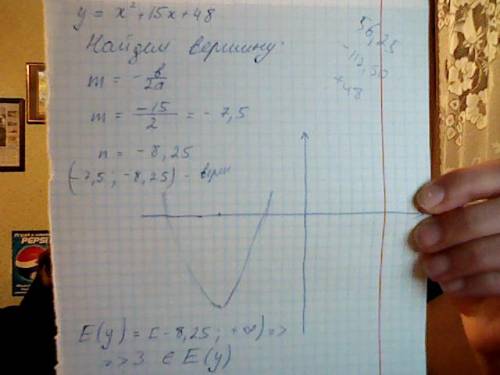 y = x² + 15x + 48
Найдем вершину:
m = -b/2a
m = -15/2 = -7,5
n = -8,25
(-7,5; -8,25) - верш
56,25
-112,50
+48
E(y) = [-8,25; +∞) =>
=> 3 ∈ E(y)
PEPSI